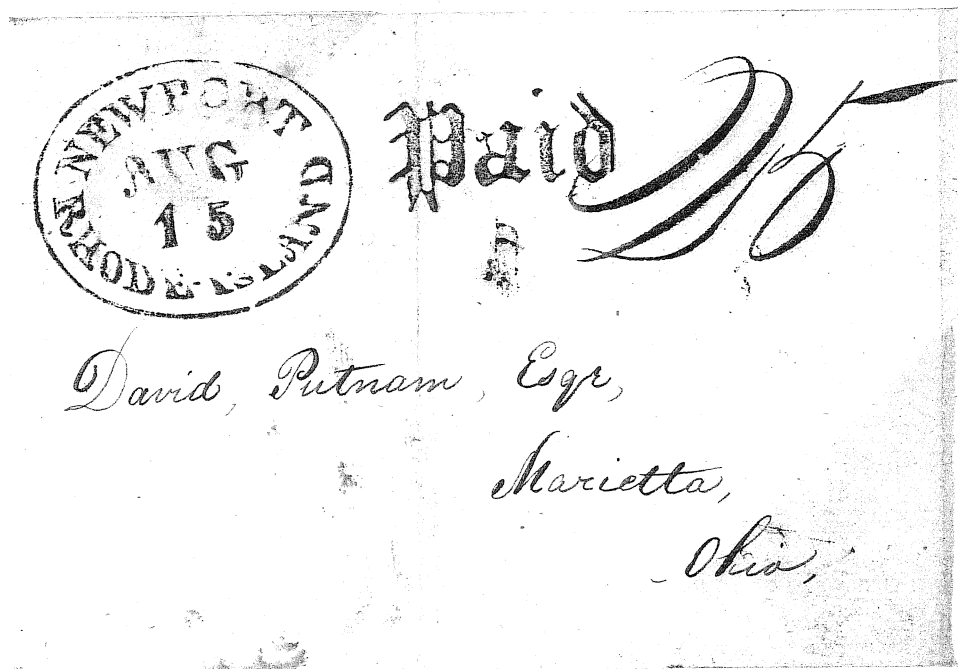 NEWPORT
AUG
15
RHODE-ISLAND
Paid
David, Putnam, Esqr,
Marietta,
Ohio,